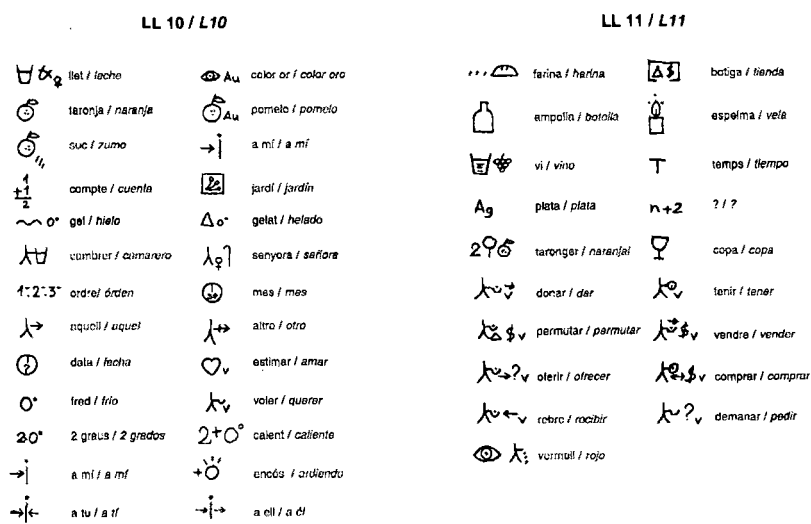 LL 10 / L10
llet / leche
taronja / naranja
suc / zumo
compte / cuenta
gel / hielo
cambrer / camarero
ordre / órden
aquell / aquel
data / fecha
fred / frío
2 graus / 2 grados
a mí / a mí
a tu / a tí
Au color or / color oro
Au pomelo / pomelo
a mí / a mí
jardí / jardín
gelat / helado
senyora / señora
mes / mes
altre / otro
estimar / amar
voler / querer
calent / caliente
encés / ardiendo
a ell / a él
LL 11 / L11
farina / harina
ampolla / botella
vi / vino
Ag plata / plata
taronger / naranjal
donar / dar
permutar / permutar
oferir / ofrecer
rebre / recibir
vermell / rojo
botiga / tienda
espelma / vela
T temps / tiempo
n+2 ? / ?
copa / copa
tenir / tener
vendre / vender
comprar / comprar
demanar / pedir